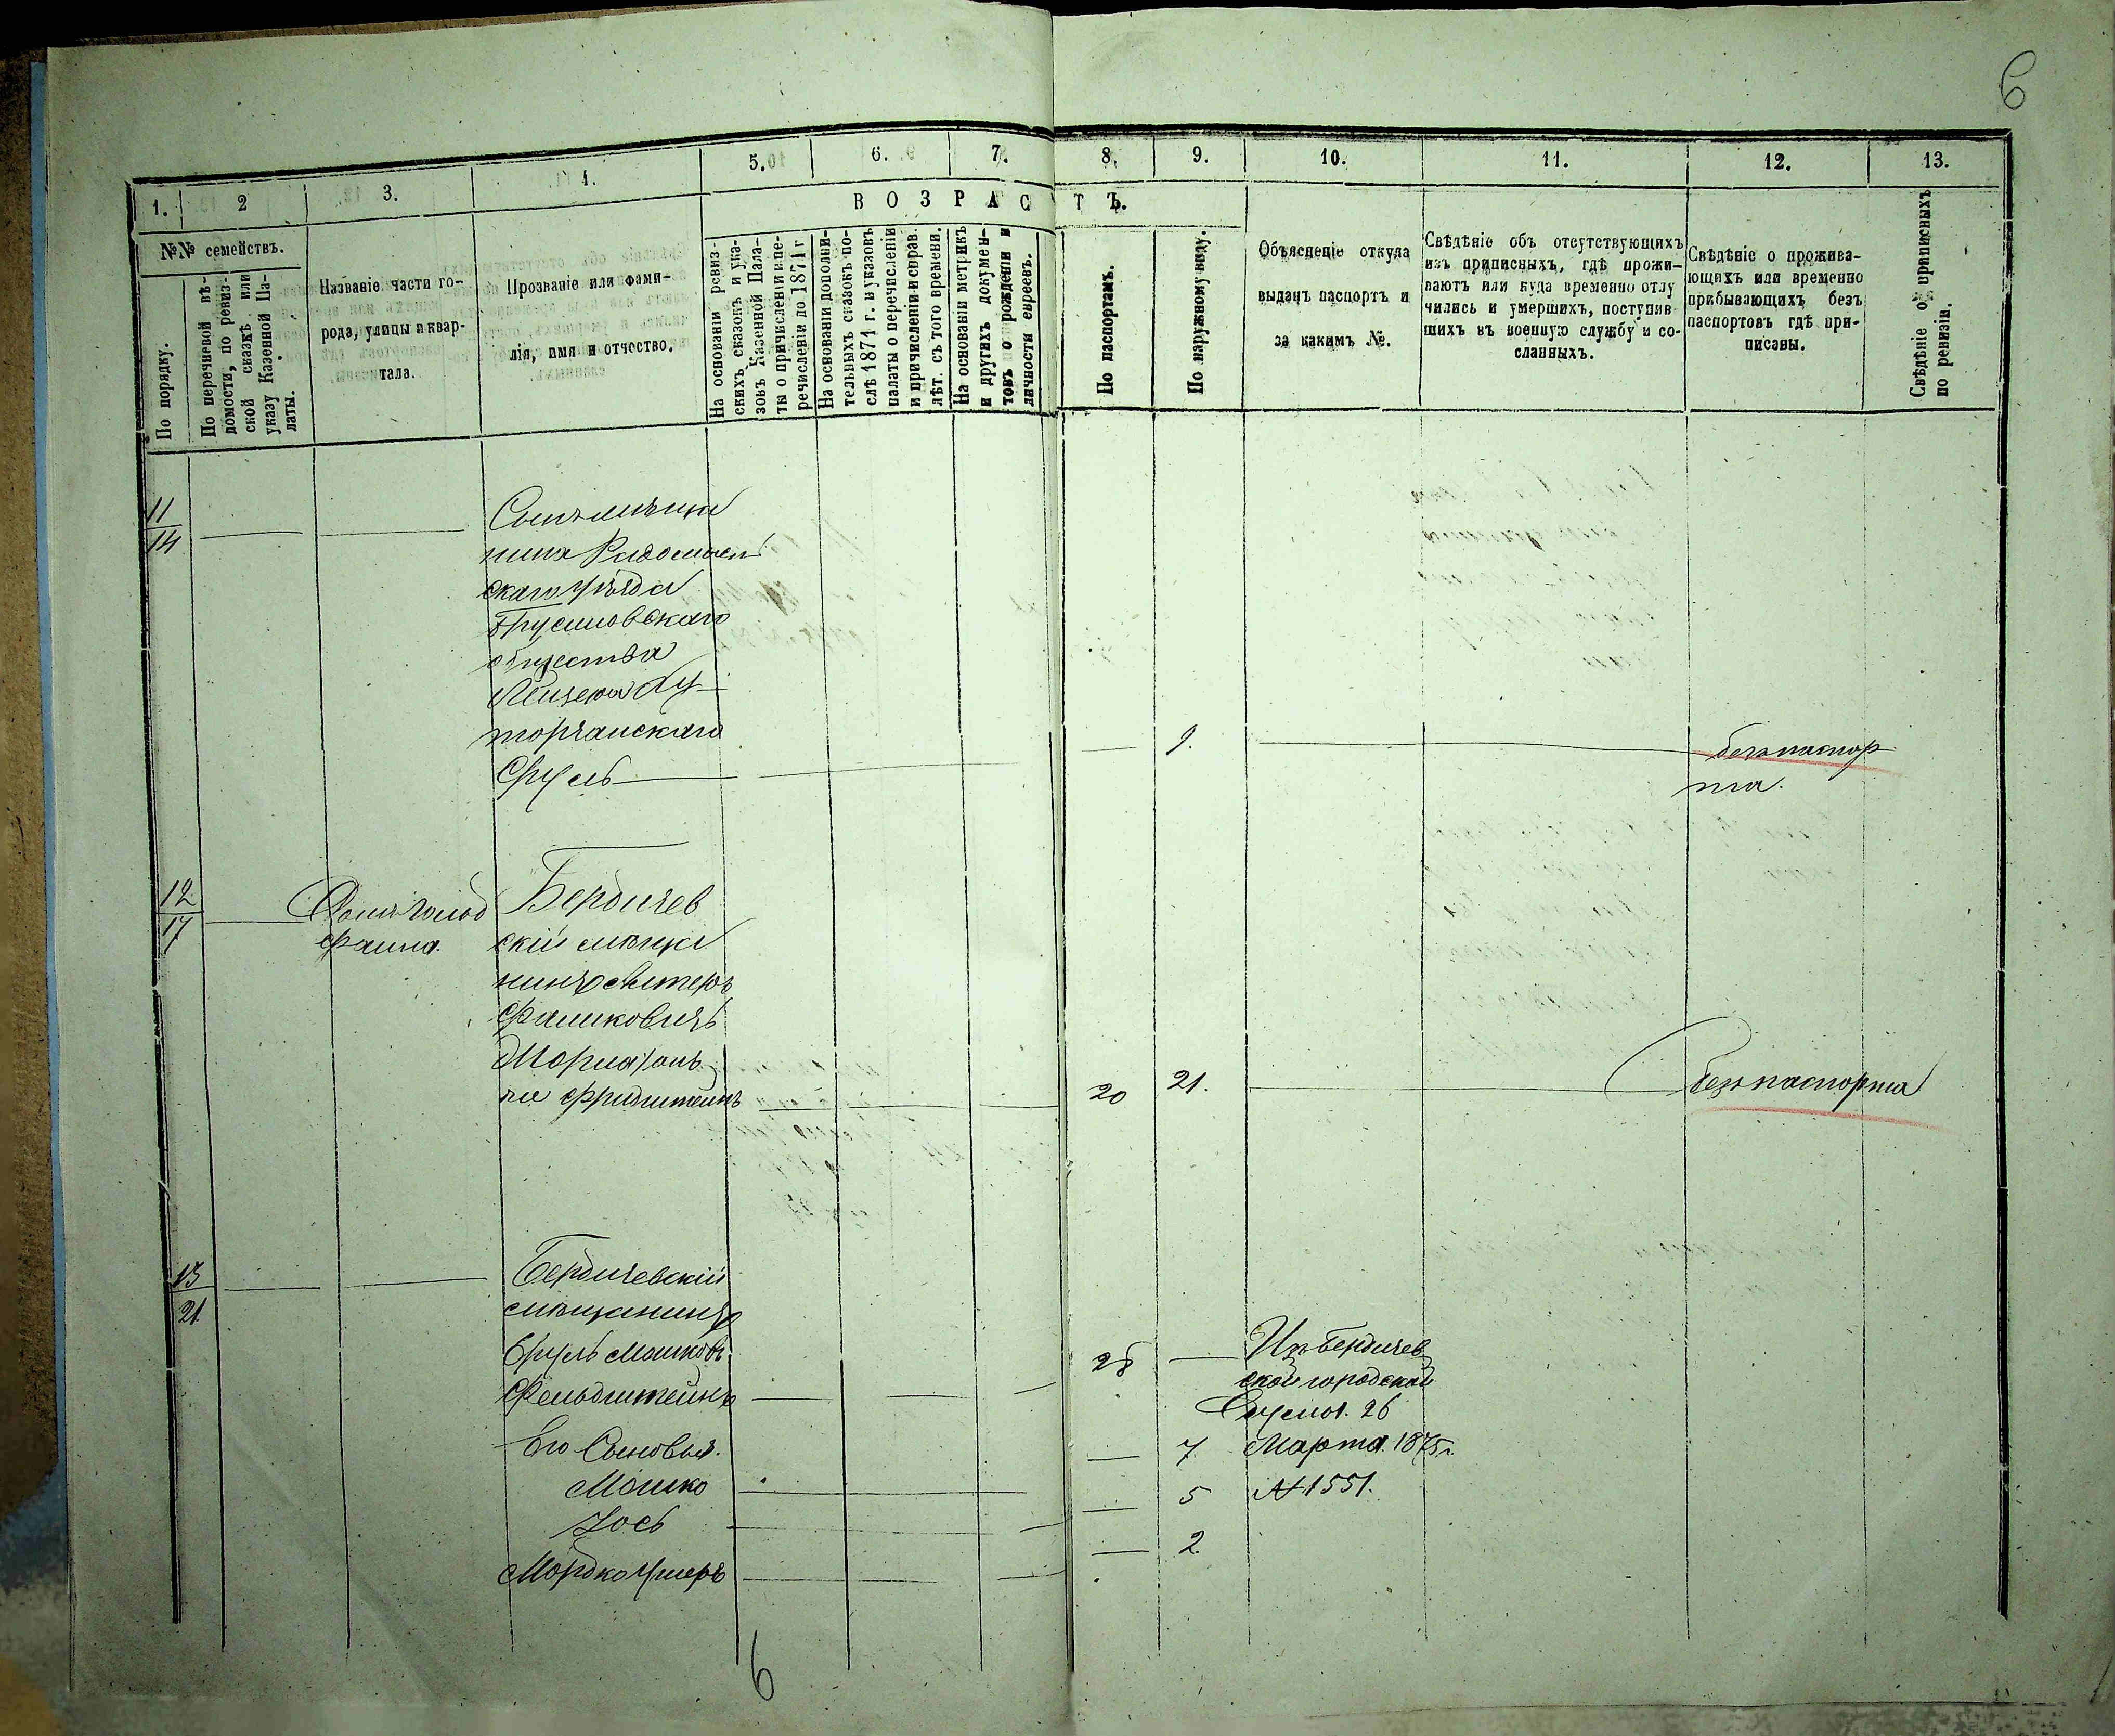 6
1.
2
3.
4.
5.
6.
7.
8.
9.
10.
11.
12.
13.
ВОЗРАСТЪ.
№№ семействъ.
По порядку.
По перечневой вѣ-
домости, по ревиз-
ской сказкѣ или
указу Казенной Па-
латы.
Названіе части го-
рода, улицы и квар-
тала.
Прозваніе или фами-
лія, имя и отчество.
На основаніи ревиз-
скихъ сказокъ и ука-
зовъ Казенной Пала-
ты о причисленіи и пе-
речисленіи до 1871 г
На основаніи дополни-
тельныхъ сказокъ по-
слѣ 1871 г. и указовъ
палаты о перечисленіи
и причисленіи и справ.
лѣт. съ того времени.
На основаніи метрикъ
и другихъ докумен-
товъ о рожденіи и
личности евреевъ.
По паспортамъ.
По наружному виду.
Объясненіе откуда
выданъ паспортъ и
за какимъ №.
Свѣдѣніе объ отсутствующихъ
изъ приписныхъ, гдѣ прожи-
ваютъ или куда временно отлу
чились и умершихъ, поступив-
шихъ въ военную службу и со-
сланныхъ.
Свѣдѣніе о прожива-
ющихъ или временно
прибывающихъ безъ
паспортовъ гдѣ при-
писаны.
Свѣдѣніе о приписныхъ
по ревизіи.
11
14
Сынъ мѣща
нина Радомысль
скаго уѣзда
Брусиловскаго
общества
торчанскаго
Сруль
9.
безъ паспор
та.
12
17
Домъ Гольд
фаина.
Бердичев
скій мѣща
нинъ
Фроимовичъ
онъ
же Фридштейнъ
20
21.
безъ паспорта
13
21
Бердичевскій
мѣщанинъ
Сруль Мошковъ
Фельдштейнъ
28
Изъ Бердичев
ской городской
Думы. 26
Марта 1875 г.
№ 1551.
Его Сыновья.
Мошко
7
Іось
5
Мордко Ушеръ
2
6